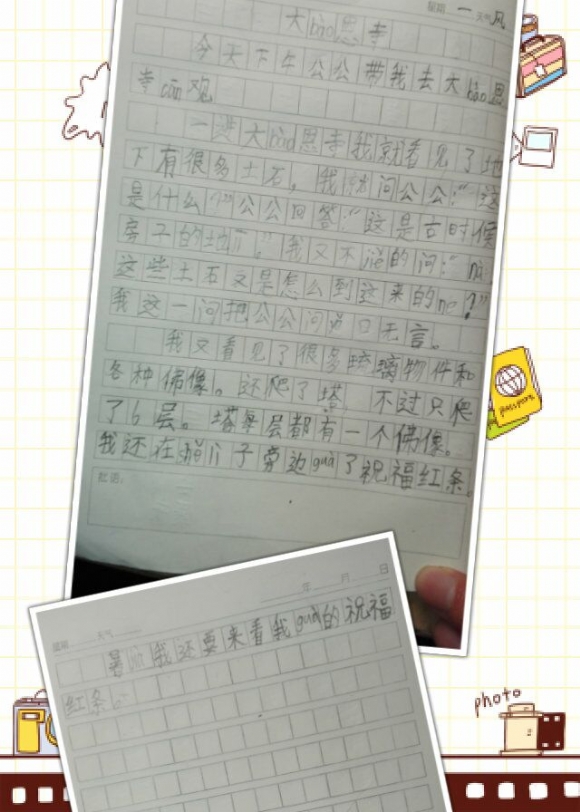 星期：一 天气 风
大bào恩寺
今天下午公公带我去大bào恩
寺cān观
一进大bào恩寺我就看见了地
下有很多土石，我就问公公：“这
是什么”公公回答：“这是古时候
房子的地”我又不的问：“nà
这些土石又是怎么到这来的ne？”
我这一问把公公问口无言。
我又看见了很多琉璃物件和
各种佛像。还爬了塔 不过只爬
了6层。塔每层都有一个佛像。
我还在子旁边guà了祝福红条。
批语：
passport
年 月 日
星期 天气
我还要来看我guà的祝福
红条
photo